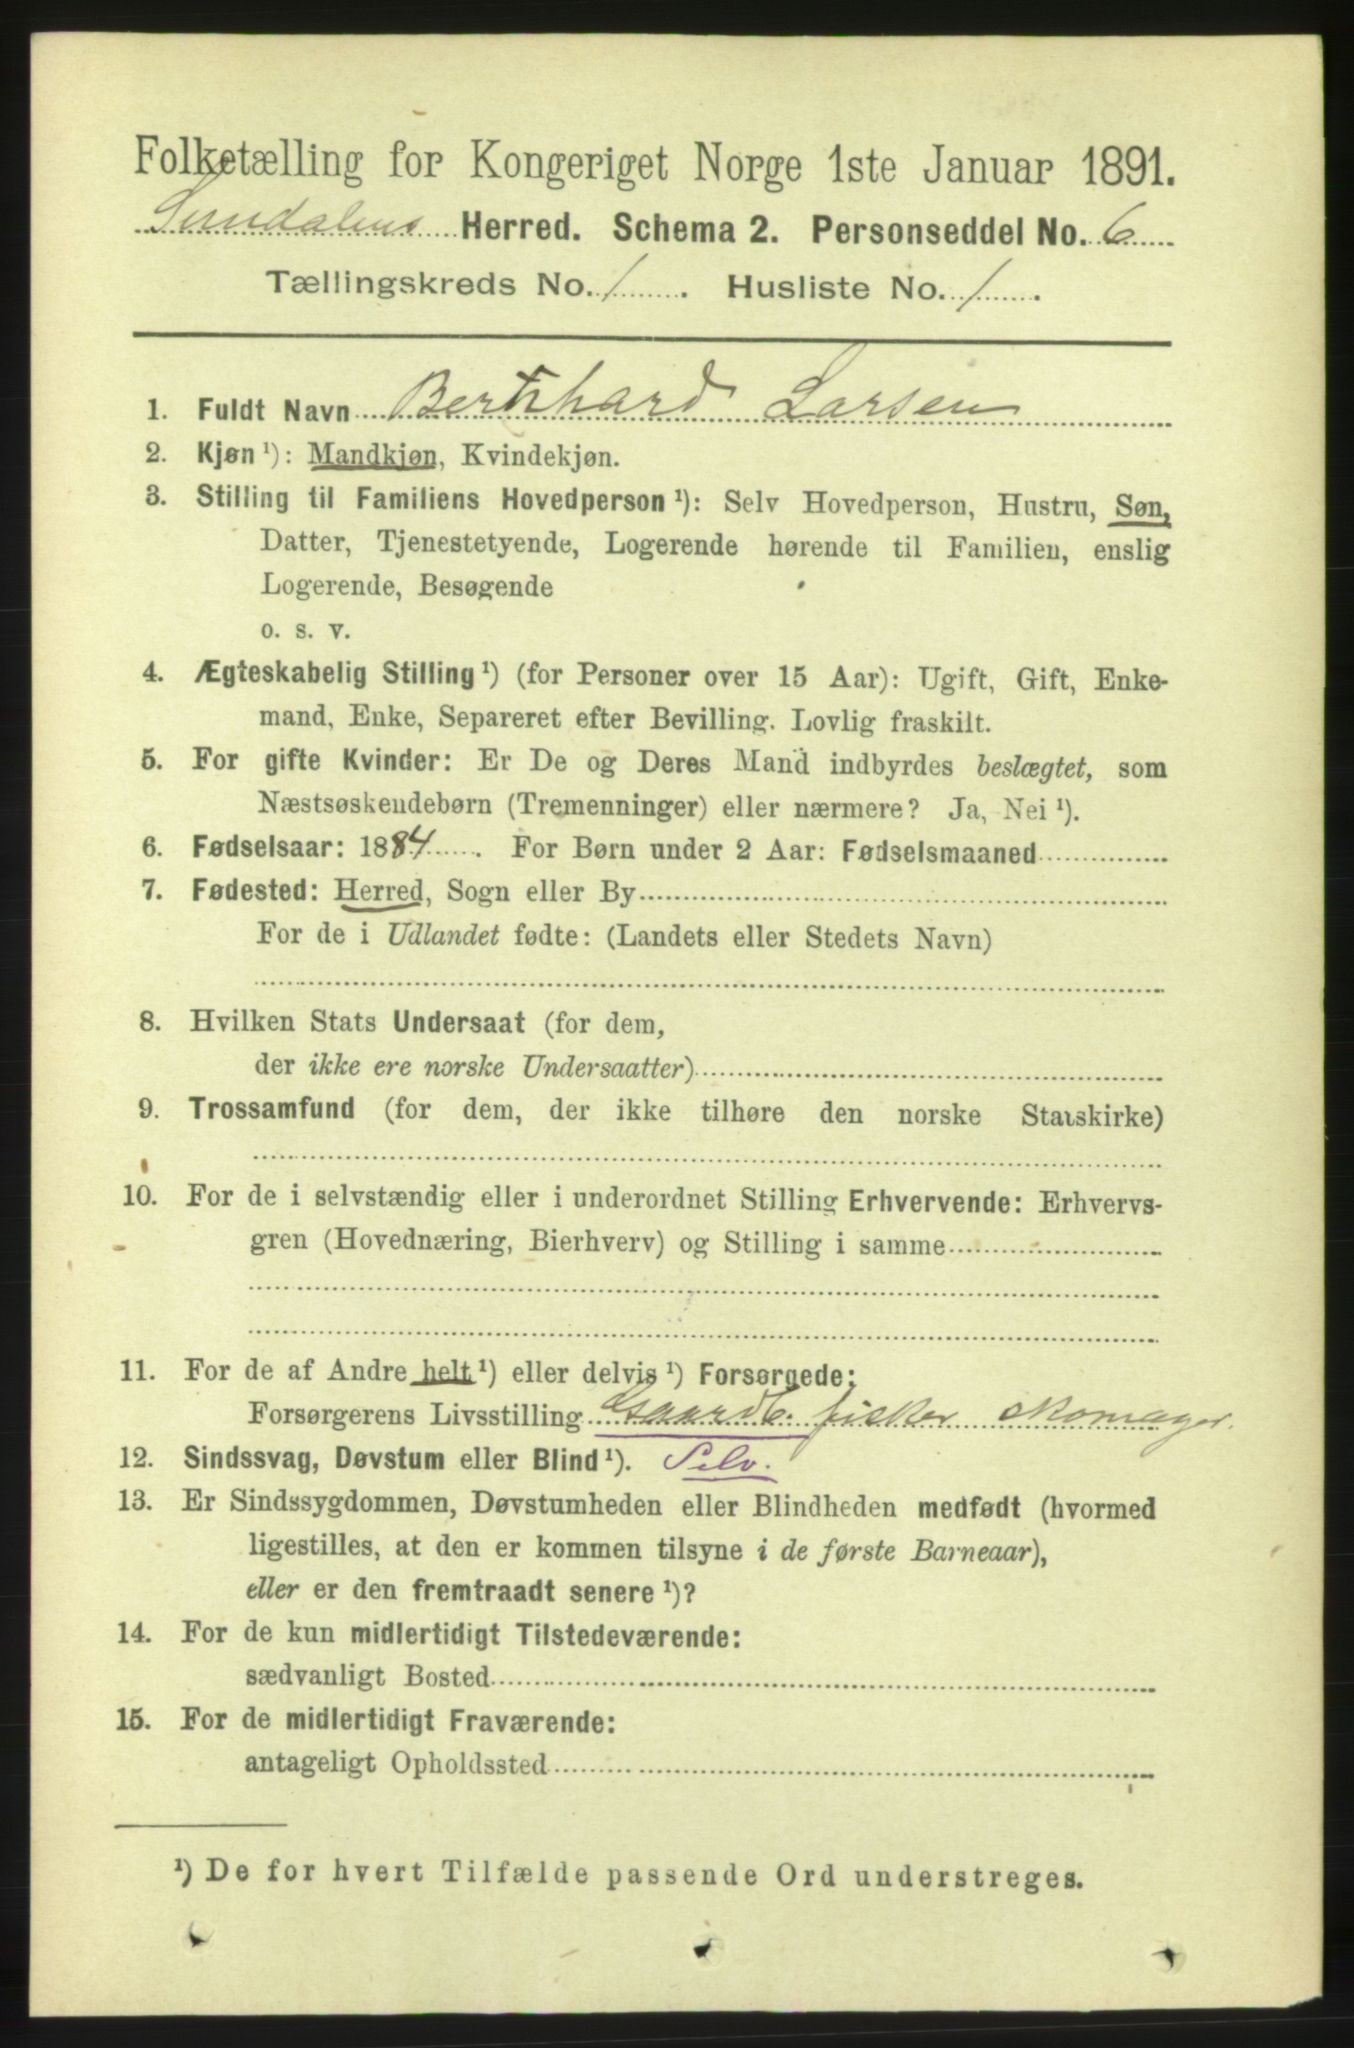 Folketælling for Kongeriget Norge 1ste Januar 1891.
Sundalens Herred. Schema 2. Personseddel No. 6
Tællingskreds No. 1. Husliste No. 1.
1. Fuldt Navn Bernhard Larsen
2. Kjøn ¹): Mandkjøn, Kvindekjøn.
3. Stilling til Familiens Hovedperson ¹): Selv Hovedperson, Hustru, Søn,
Datter, Tjenestetyende, Logerende hørende til Familien, enslig
Logerende, Besøgende
o. s. v.
4. Ægteskabelig Stilling ¹) (for Personer over 15 Aar): Ugift, Gift, Enke-
mand, Enke, Separeret efter Bevilling. Lovlig fraskilt.
5. For gifte Kvinder: Er De og Deres Mand indbyrdes beslægtet, som
Næstsøskendebørn (Tremenninger) eller nærmere? Ja, Nei ¹).
6. Fødselsaar: 1884. For Børn under 2 Aar: Fødselsmaaned
7. Fødested: Herred, Sogn eller By
For de i Udlandet fødte: (Landets eller Stedets Navn)
8. Hvilken Stats Undersaat (for dem,
der ikke ere norske Undersaatter)
9. Trossamfund (for dem, der ikke tilhøre den norske Statskirke)
10. For de i selvstændig eller i underordnet Stilling Erhvervende: Erhvervs-
gren (Hovednæring, Bierhverv) og Stilling i samme
11. For de af Andre helt ¹) eller delvis ¹) Forsørgede:
Forsørgerens Livsstilling Gaardb. fisker skomager.
12. Sindssvag, Døvstum eller Blind ¹). Selv.
13. Er Sindssygdommen, Døvstumheden eller Blindheden medfødt (hvormed
ligestilles, at den er kommen tilsyne i de første Barneaar),
eller er den fremtraadt senere ¹)?
14. For de kun midlertidigt Tilstedeværende:
sædvanligt Bosted
15. For de midlertidigt Fraværende:
antageligt Opholdssted
¹) De for hvert Tilfælde passende Ord understreges.